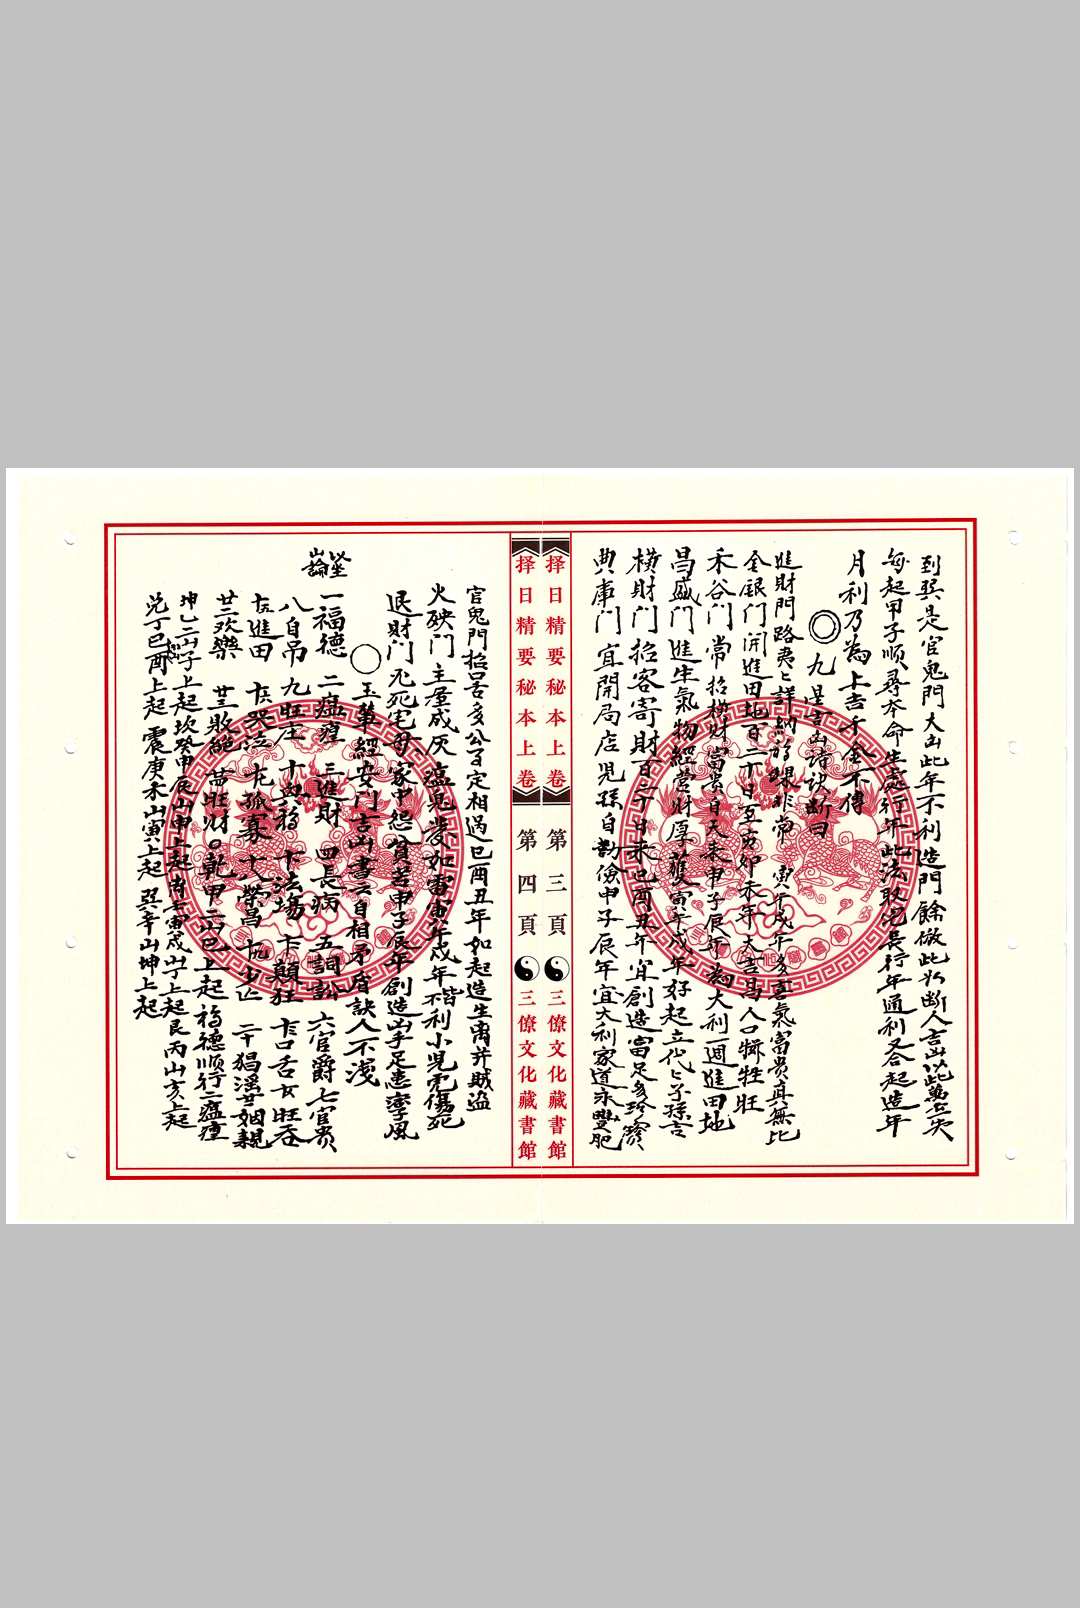 到巽是官鬼門大凶此年不利造門餘倣此以斷人吉凶以此萬無失
每起甲子順尋本命生處行年此法取 長行年通利又合起造年
月利乃為上吉千金不傳
◎九星吉凶詩訣斷曰
進財門路夷々詳納福 非常寅午戌年多喜氣富貴真無比
金銀门開進田地百二十日至亥卯未年大吉昌人口犐牲旺
禾谷门常招横財富贵自天来申子辰年為大利週進田地
昌盛门進生氣物經营財厚獲寅午戌年好起立代々子孫吉
横財门招客寄財百二十日来巳酉丑年宜創造富足多珍寳
典庫门宜開局店児孫自勤儉申子辰年宜大利家道永豐肥
择日精要秘本上卷 第三頁 三僚文化藏書館
择日精要秘本上卷 第四頁 三僚文化藏書館
官鬼門招口舌多公百定相過巳酉丑年如起造生离并贼盗
火殃门主屋成灰瘟鬼發如雷寅午戌年皆不利小児虎傷死
退財门先死宅母家中怨貧苦申子辰年創造凶手足患孪風
〇玉華經安门吉凶書云自相矛盾訣人不浅
坐山論
一福德 二瘟瘟 三進財 四長病 五詞訟 六官爵 七官贵
八自吊 九旺庄 十興福 十一法場 十二顛狂 十三口舌 十四旺蚕
十五進田 十六哭泣 十七孤寡 十八榮昌 十九少亡 二十猖淫 廿一姻親
廿二欢樂 廿三敗絕 廿四旺财 〇乾甲二山巳上起福德順行二瘟瘟
坤乙二山子上起坎癸申辰山申上起离壬寅戌山 上起艮丙山亥上起
兑丁巳酉 上起震庚 未山寅上起巽辛山坤上起